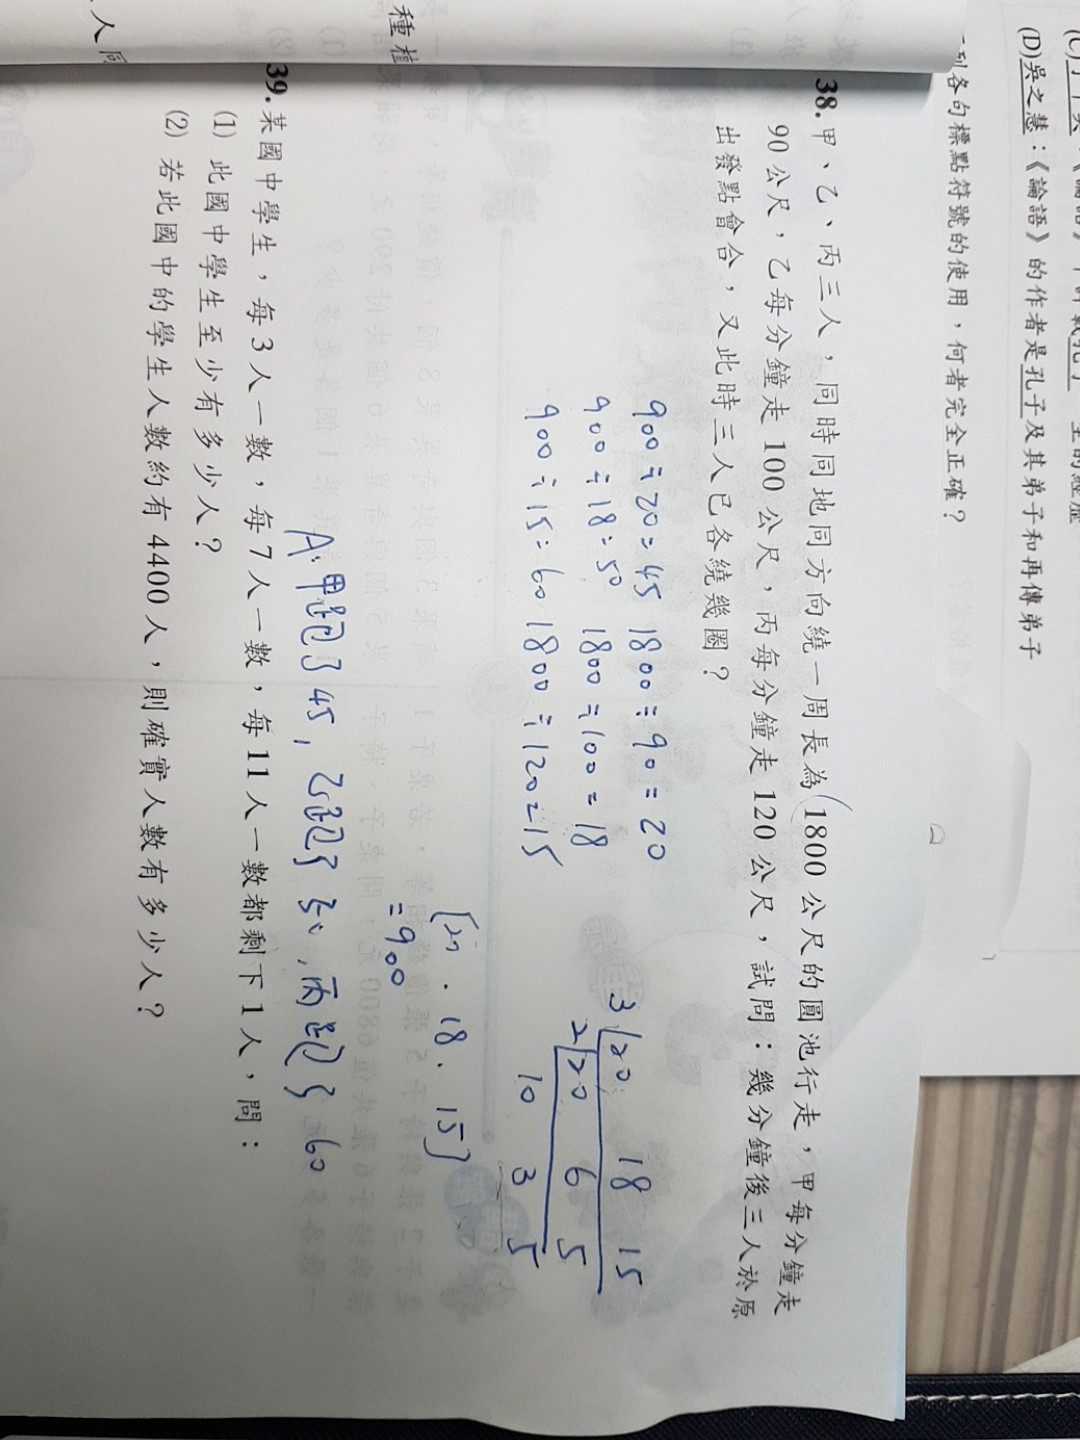 (D)吳之慧：《論語》的作者是孔子及其弟子和再傳弟子
列各句標點符號的使用，何者完全正確？
38.甲、乙、丙三人，同時同地同方向繞一周長為1800公尺的圓池行走，甲每分鐘走
90公尺，乙每分鐘走100公尺，丙每分鐘走120公尺，試問：幾分鐘後三人於原
出發點會合，又此時三人已各繞幾圈？
900÷20=45 1800÷90=20
900÷18=50 1800÷100=18
900÷15=60 1800÷120=15
3 20 18 15
2 20 6 5
10 3 5
[20.18.15]
=900
A:甲跑了45,乙跑了50,丙跑了60
種植
39.某國中學生，每3人一數，每7人一數，每11人一數都剩下1人，問：
(1) 此國中學生至少有多少人？
(2) 若此國中的學生人數約有4400人，則確實人數有多少人？
人同